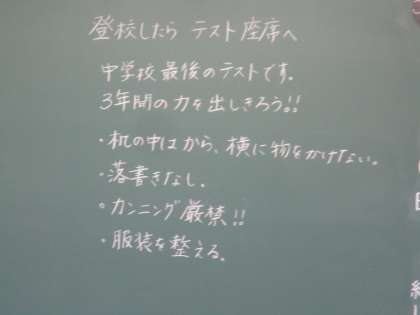 登校したら テスト座席へ
中学校最後のテストです。
3年間の力を出しきろう!!
・机の中はから、横に物をかけない。
・落書きなし。
・カンニング厳禁!!
・服装を整える。